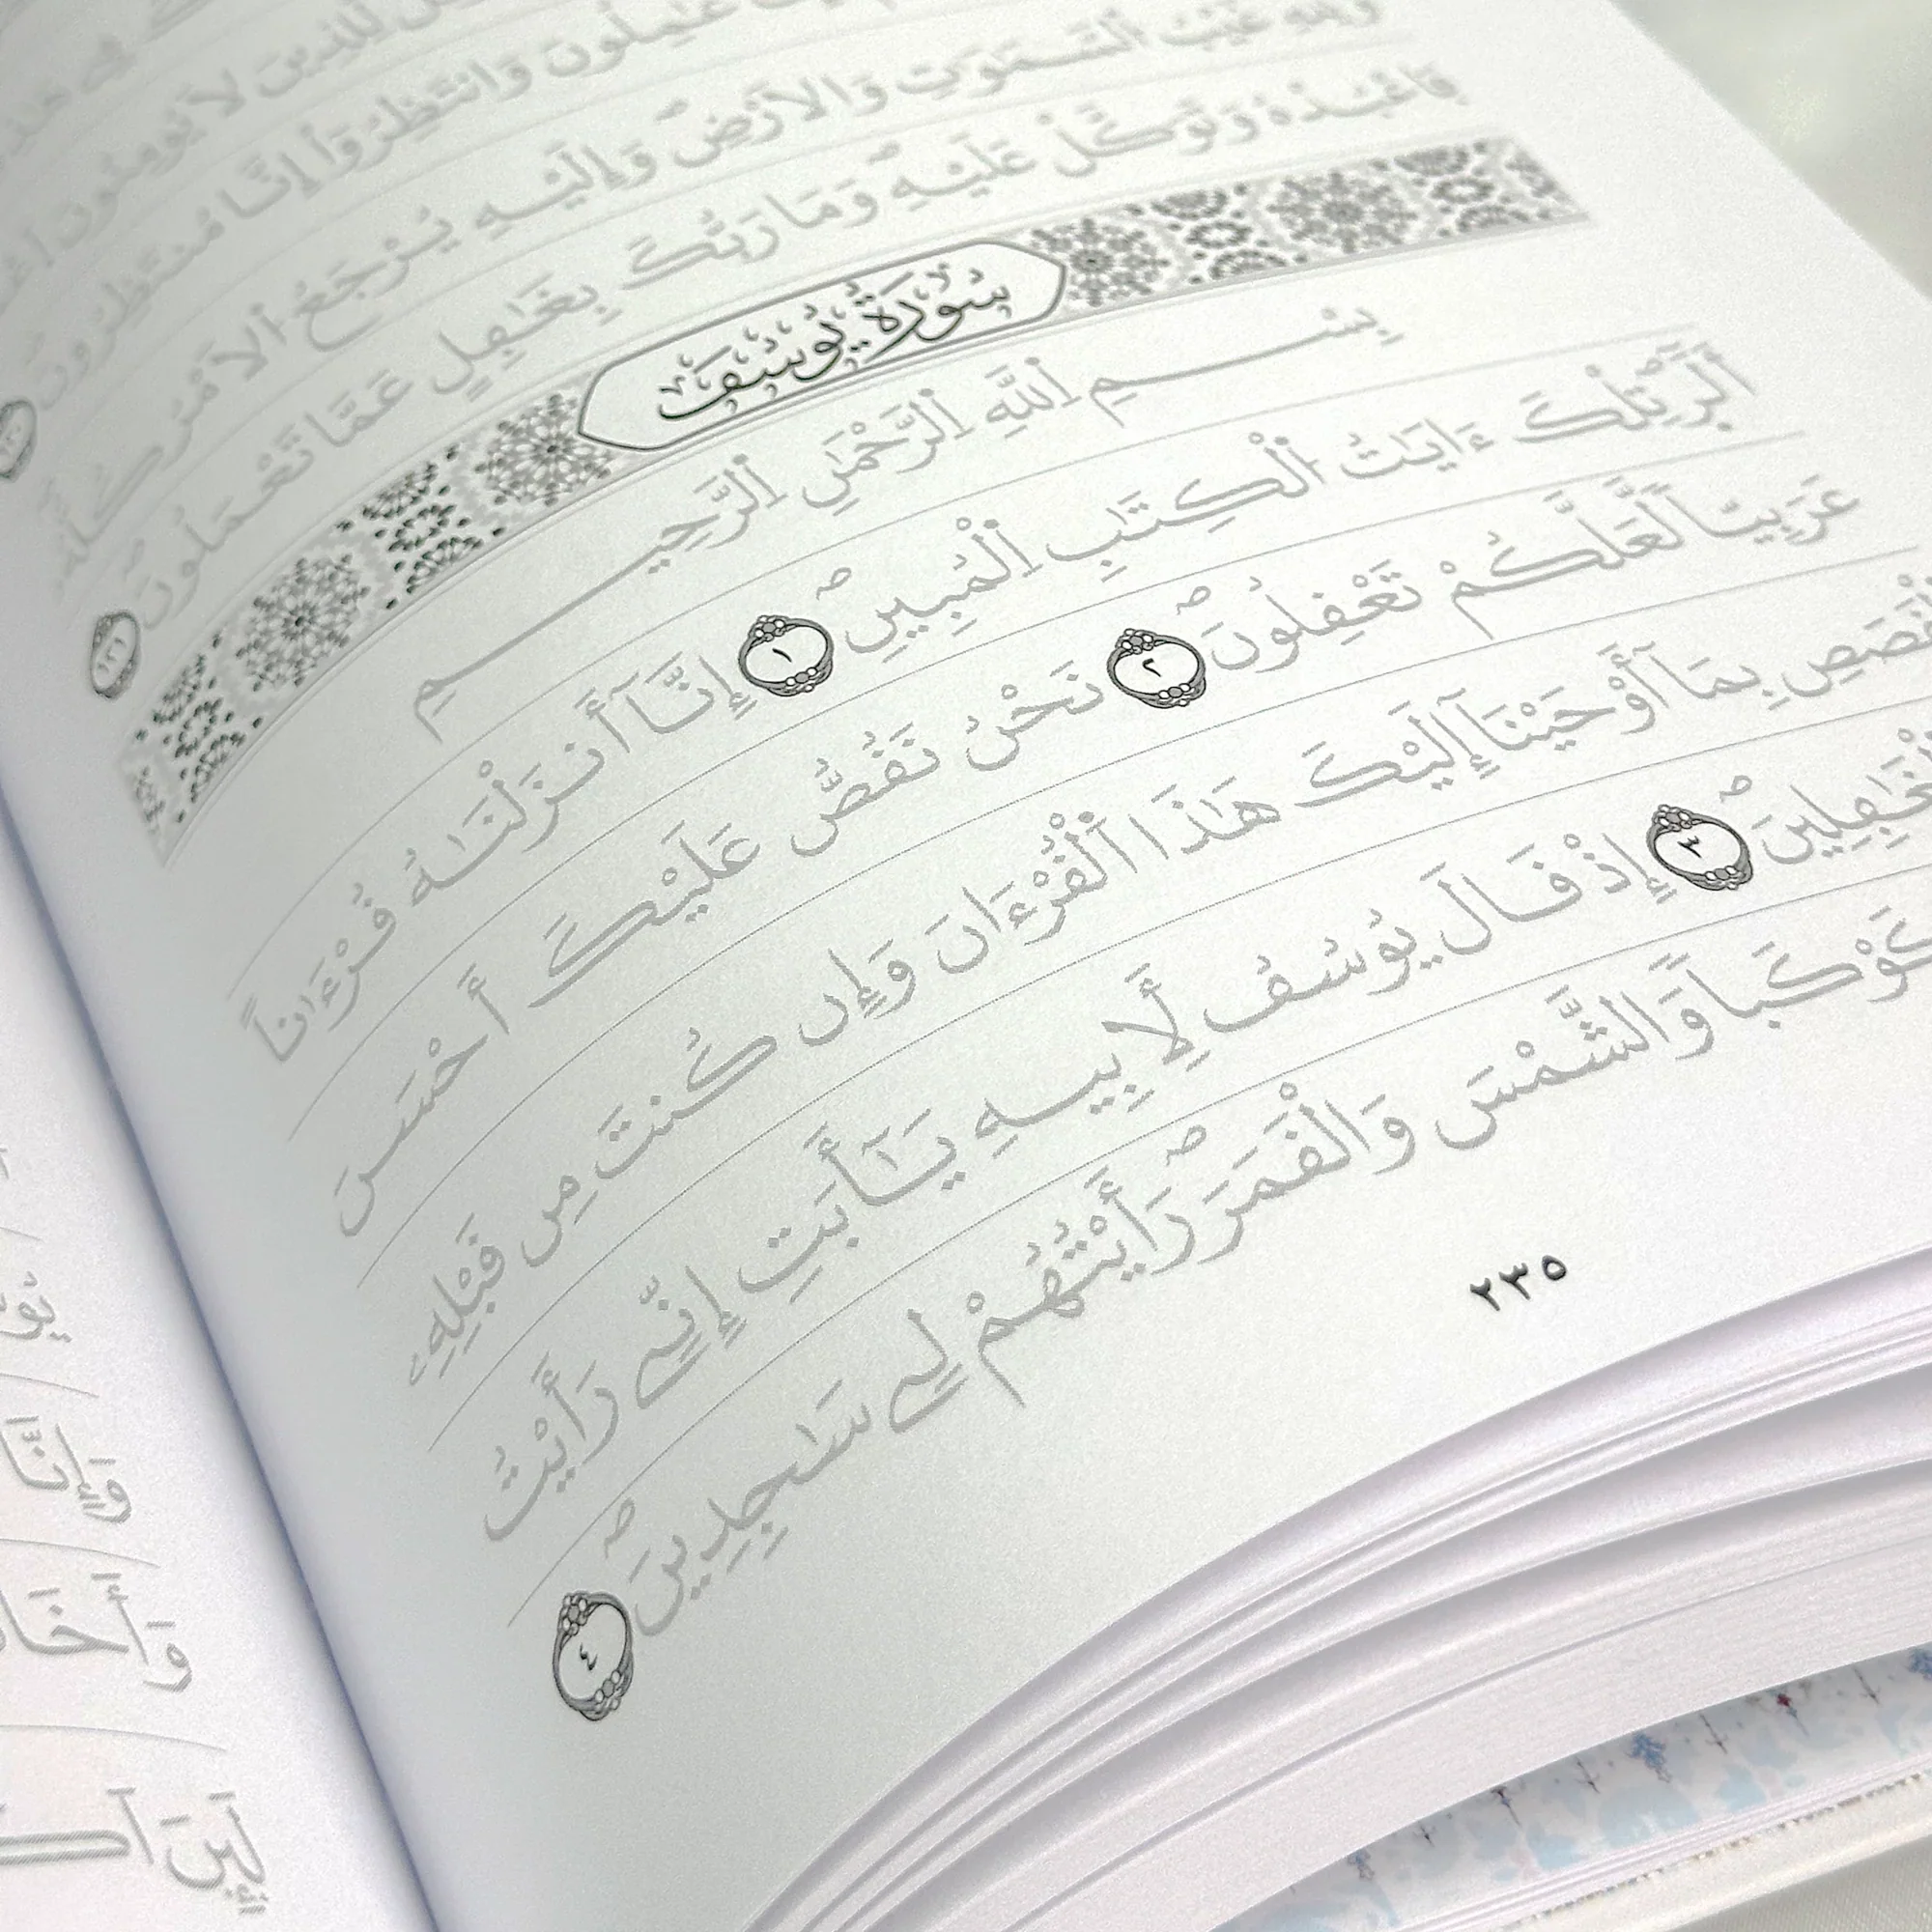 لِّلذِينَ لَا يُومِنُونَ
عَٰمِلُونَ وَانتَظِرُوٓاْ إِنَّا مُنتَظِرُونَ ١٢٠
وَلِلهِ غَيْبُ اُلسَّمَٰوَٰتِ وَالَارْضِ وَإِلَيْهِ يَرْجِعُ اُلَامْرُ كُلُّهُۥ
فَاعْبُدْهُ وَتَوَكَّلْ عَلَيْهِ وَمَا رَبُّكَ بِغَٰفِلٍ عَمَّا تَعْمَلُونَ ١٢١
سُورَةُ يُوسُف
بِسْمِ اِللَّهِ اِلرَّحْمَٰنِ اِلرَّحِيمِ
أَلَٓرۖ تِلْكَ ءَايَٰتُ اُلْكِتَٰبِ اِلْمُبِينِۖ ١ إِنَّآ أَنزَلْنَٰهُ قُرْءَاناً
عَرَبِيّاً لَّعَلَّكُمْ تَعْقِلُونَۖ ٢ نَحْنُ نَقُصُّ عَلَيْكَ أَحْسَنَ
اَلْقَصَصِ بِمَآ أَوْحَيْنَآ إِلَيْكَ هَٰذَا اَلْقُرْءَانَ وَإِن كُنتَ مِن قَبْلِهِۦ
اَلْغَٰفِلِينَۖ ٣ إِذْ قَالَ يُوسُفُ لِأَبِيهِ يَٰٓأَبَتِ إِنِّے رَأَيْتُ
كَوْكَباً وَالشَّمْسَ وَالْقَمَرَ رَأَيْتُهُمْ لِے سَٰجِدِينَۖ ٤
٢٣٥
وَإِنَّا